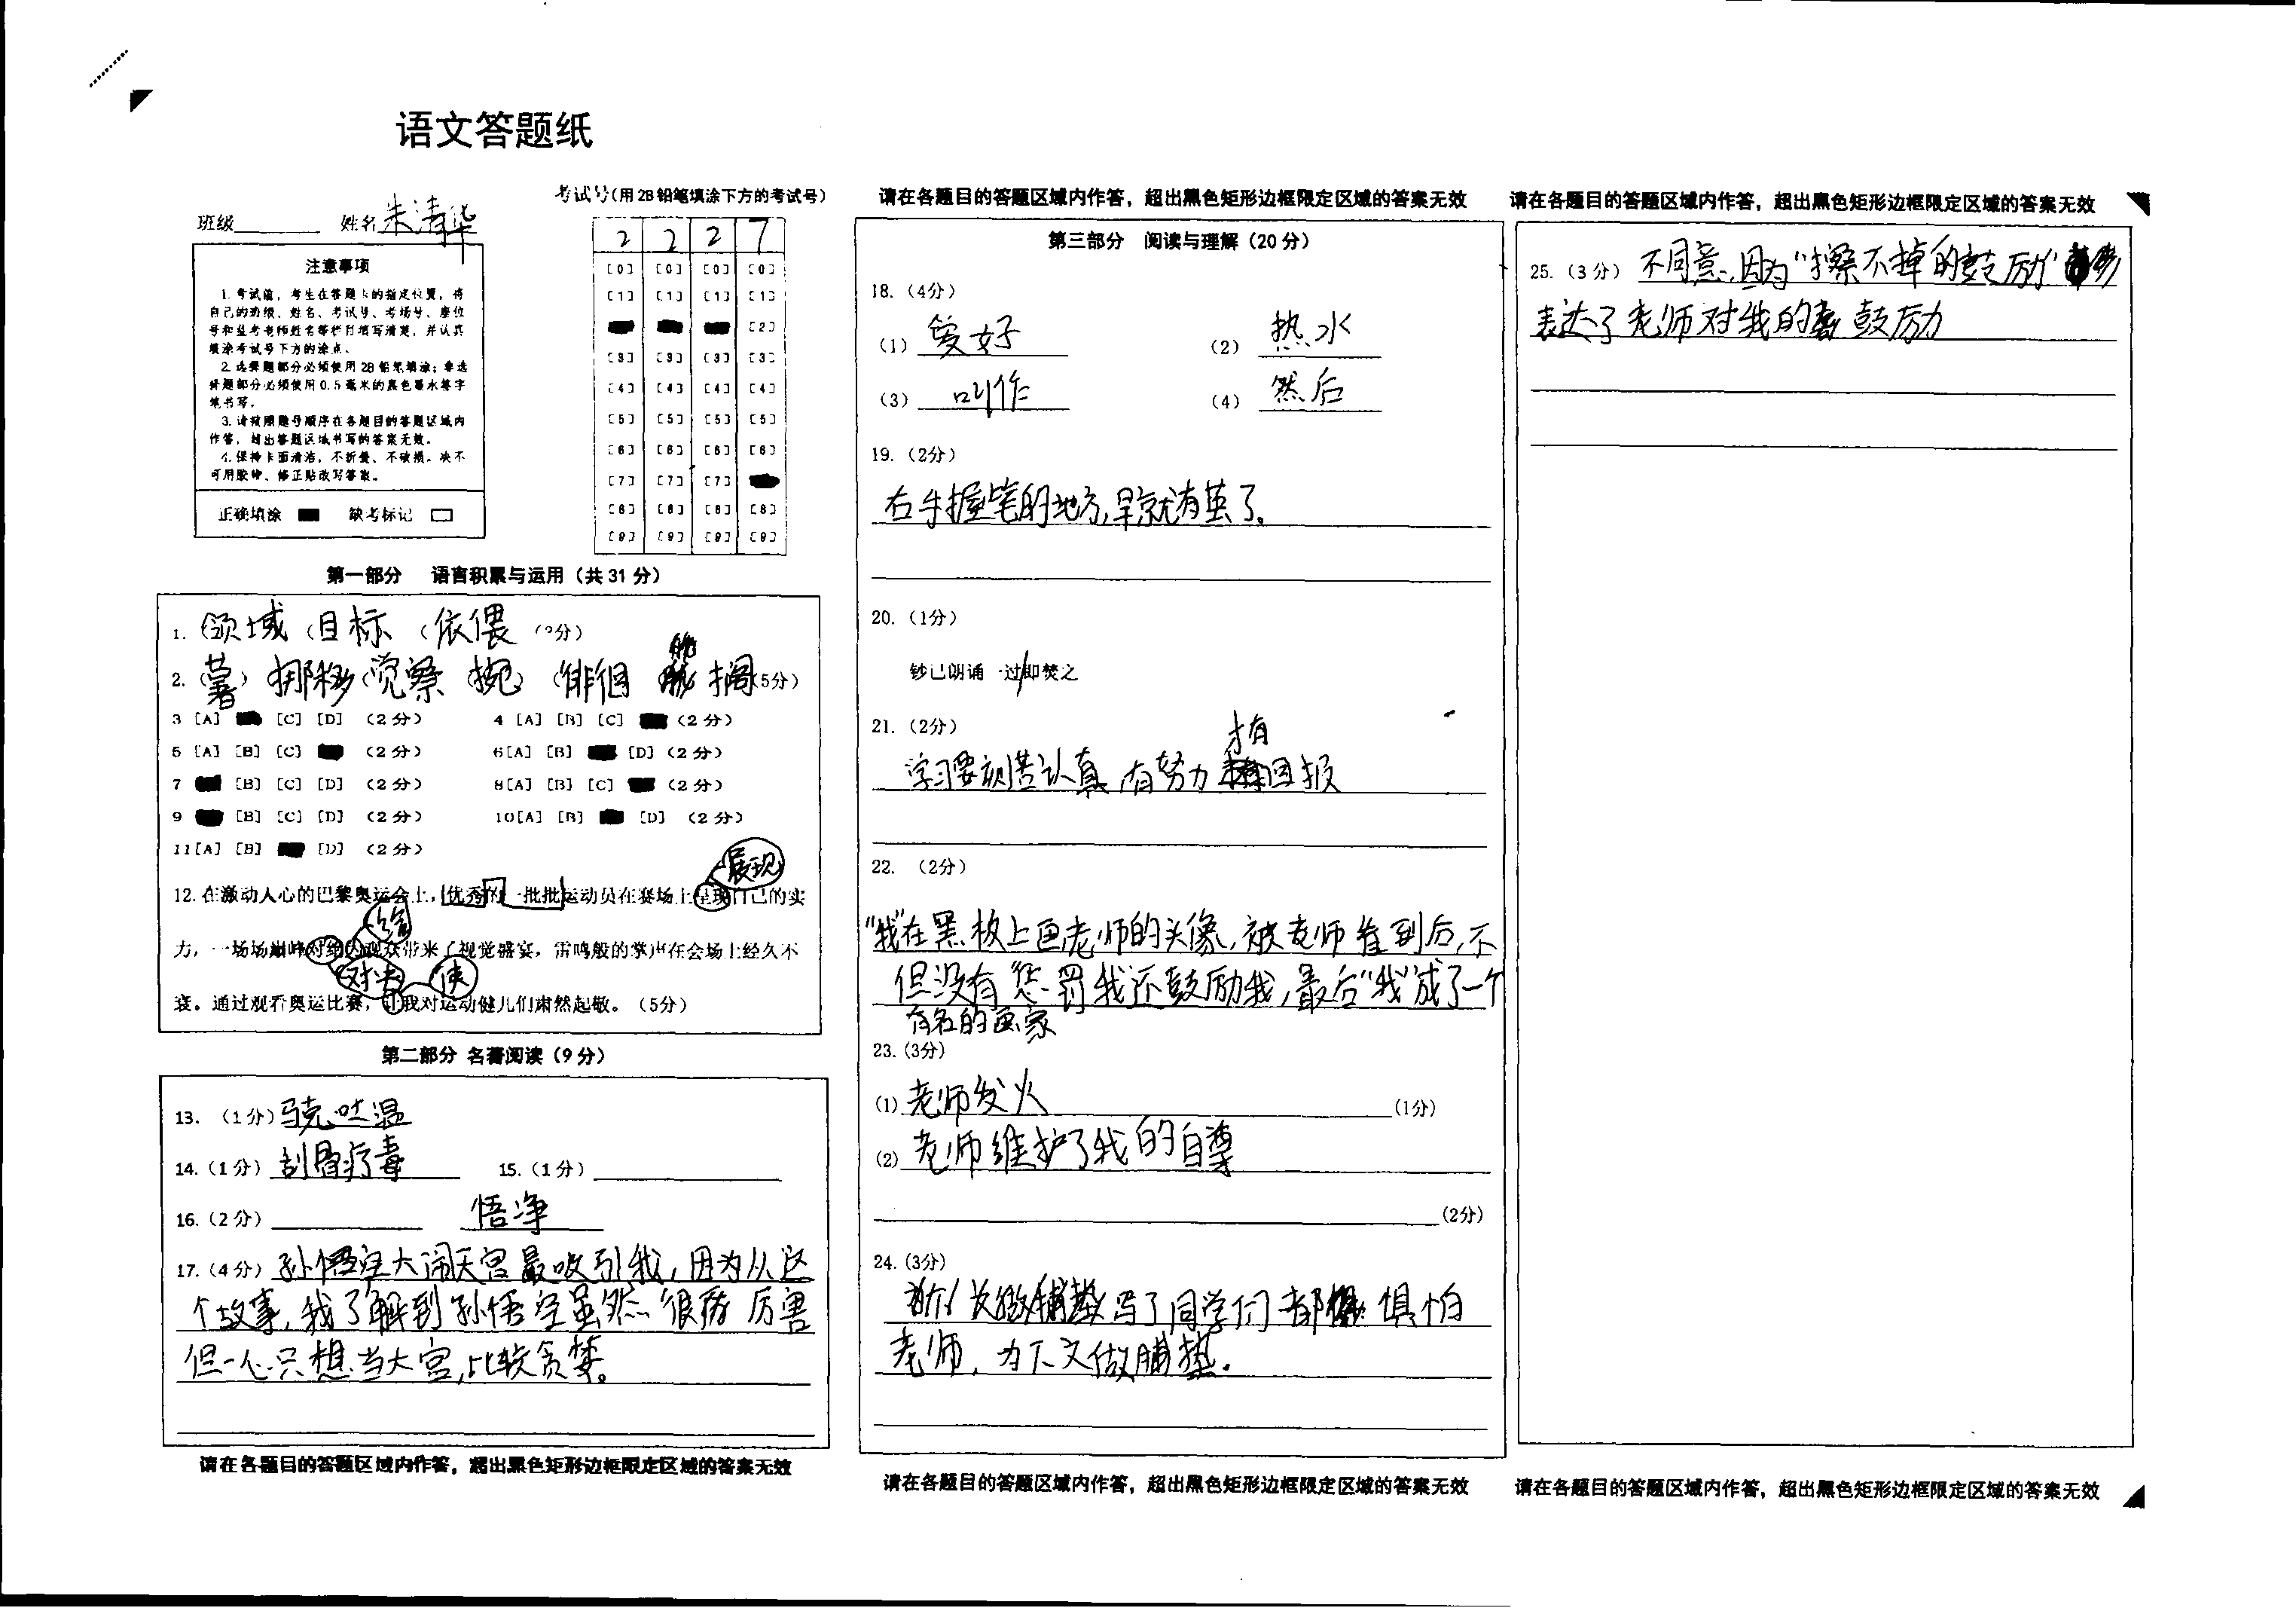 语文答题纸
班级 姓名 朱清华
考试号(用2B铅笔填涂下方的考试号)
2 2 2 7
[0] [0] [0] [0]
[1] [1] [1] [1]
[2]
[3] [3] [3] [3]
[4] [4] [4] [4]
[5] [5] [5] [5]
[6] [6] [6] [6]
[7] [7] [7]
[8] [8] [8] [8]
[9] [9] [9] [9]
注意事项
1.考试前，考生在答题卡的指定位置，将
自己的班级、姓名、考试号、考场号、座位
号和监考老师姓名等栏目填写清楚，并认真
填涂考试号下方的涂点。
2.选择题部分必须使用2B铅笔填涂；非选
择题部分必须使用0.5毫米的黑色墨水签字
笔书写。
3.请按照题号顺序在各题目的答题区域内
作答，超出答题区域书写的答案无效。
4.保持卡面清洁，不折叠、不破损。决不
可用胶带、修正贴改写答案。
正确填涂 缺考标记
第一部分 语言积累与运用（共31分）
1. 领域 目标 依偎
2. 薯 挪移 觉察 挽 徘徊 搁 (5分)
3 [A] [C] [D] （2分） 4 [A] [B] [C] （2分）
5 [A] [B] [C] （2分） 6[A] [B] [D]（2分）
7 [B] [C] [D] （2分） 8[A] [B] [C] （2分）
9 [B] [C] [D] （2分） 10[A] [B] [D] （2分）
11[A] [B] [D] （2分）
展现
12.在激动人心的巴黎奥运会上，优秀的一批批运动员在赛场上呈现自己的实
给
力，一场场巅峰对绝为观众带来了视觉盛宴，雷鸣般的掌声在会场上经久不
对决 使
衰。通过观看奥运比赛，让我对运动健儿们肃然起敬。（5分）
第二部分 名著阅读（9分）
13. （1分）骁 吐温
14.（1分）刮骨疗毒 15.（1分）
16.（2分） 悟净
17.（4分）孙悟空大闹天宫最吸引我，因为从这
个故事，我了解到孙悟空虽然很 厉害
但一心只想当大官，比较贪婪。
请在各题目的答题区域内作答，超出黑色矩形边框限定区域的答案无效
请在各题目的答题区域内作答，超出黑色矩形边框限定区域的答案无效
第三部分 阅读与理解（20分）
18.（4分）
(1) 爱好 (2) 热水
(3) 叫作 (4) 然后
19.（2分）
右手握笔的地方，早就有茧了。
20.（1分）
钞已朗诵一过/即焚之
21.（2分）
才有
学习要刻苦认真，有努力 回报
22. （2分）
“我”在黑板上画老师的头像，被老师看到后，不
但没有惩罚我还鼓励我，最后“我”成了一个
有名的画家
23.(3分)
(1) 老师发火 (1分)
(2) 老师维护了我的自尊
(2分)
24.(3分)
写了同学们都 惧怕
老师，为下文做铺垫.
请在各题目的答题区域内作答，超出黑色矩形边框限定区域的答案无效
请在各题目的答题区域内作答，超出黑色矩形边框限定区域的答案无效
25.（3分）不同意，因为“擦不掉的鼓励”
表达了老师对我的 鼓励
请在各题目的答题区域内作答，超出黑色矩形边框限定区域的答案无效